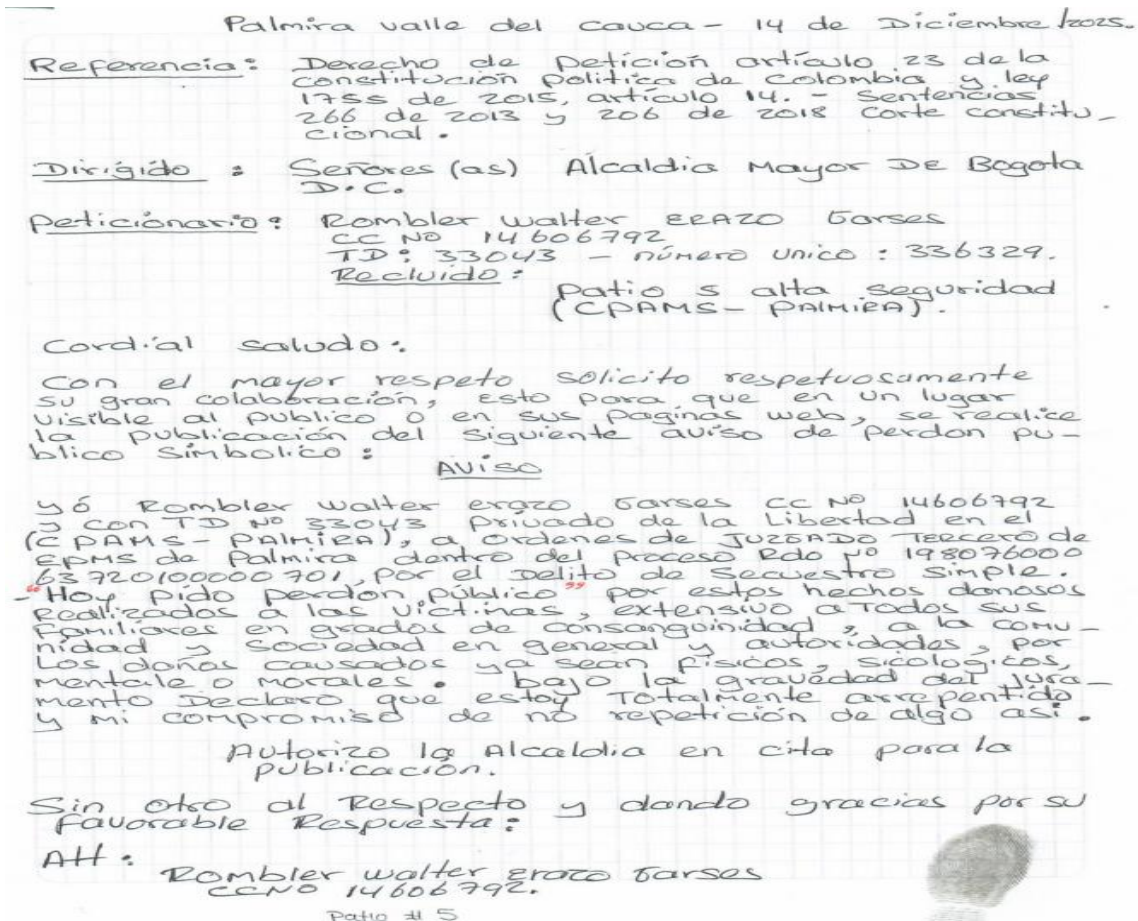 Palmira valle del cauca - 14 de Diciembre/2025.
Referencia: Derecho de petición artículo 23 de la
constitución politica de colombia y ley
1755 de 2015, artículo 14. - Sentencias
266 de 2013 y 206 de 2018 corte constitu_
cional.
Dirigido : Señores (as) Alcaldia Mayor De Bogota
D.C.
Peticionario: Rombler walter ERAZO Garses
CC Nº 14606792
TD: 33043 - número unico : 336329.
Recluido:
patio 5 alta seguridad
(CPAMS- PAlMiRA).
Cordial saludo:
Con el mayor respeto solicito respetuosamente
su gran colaboración, esto para que en un lugar
visible al publico o en sus paginas web, se realice
la publicación del siguiente aviso de perdon pu-
blico simbolico:
AViso
yó Rombler walter erazo Garses CC Nº 14606792
y con TD Nº 33043 privado de la Libertad en el
(CPAMS- PAlMiRA), a ordenes de JUZGADO Tercero de
EPMS de Palmira dentro del proceso Rdo Nº 198076000
63720100000701, por el Delito de Secuestro simple.
-"Hoy pido perdon público" por estos hechos danosos
Realizados a las victimas, extensivo a Todos sus
Familiares en grados de consanguinidad, a la comu-
nidad y sociedad en general y autoridades, por
Los daños causados ya sean físicos, sicologicos,
mentale o morales. bajo la gravedad del jura-
mento Declaro que estoy Totalmente arrepentido
y mi compromiso de no repetición de algo así.
Autorizo la Alcaldia en cita para la
publicación.
Sin otro al Respecto y dando gracias por su
favorable Respuesta:
Att:
Rombler walter erazo Garses
CCNO 14606792.
Patio # 5